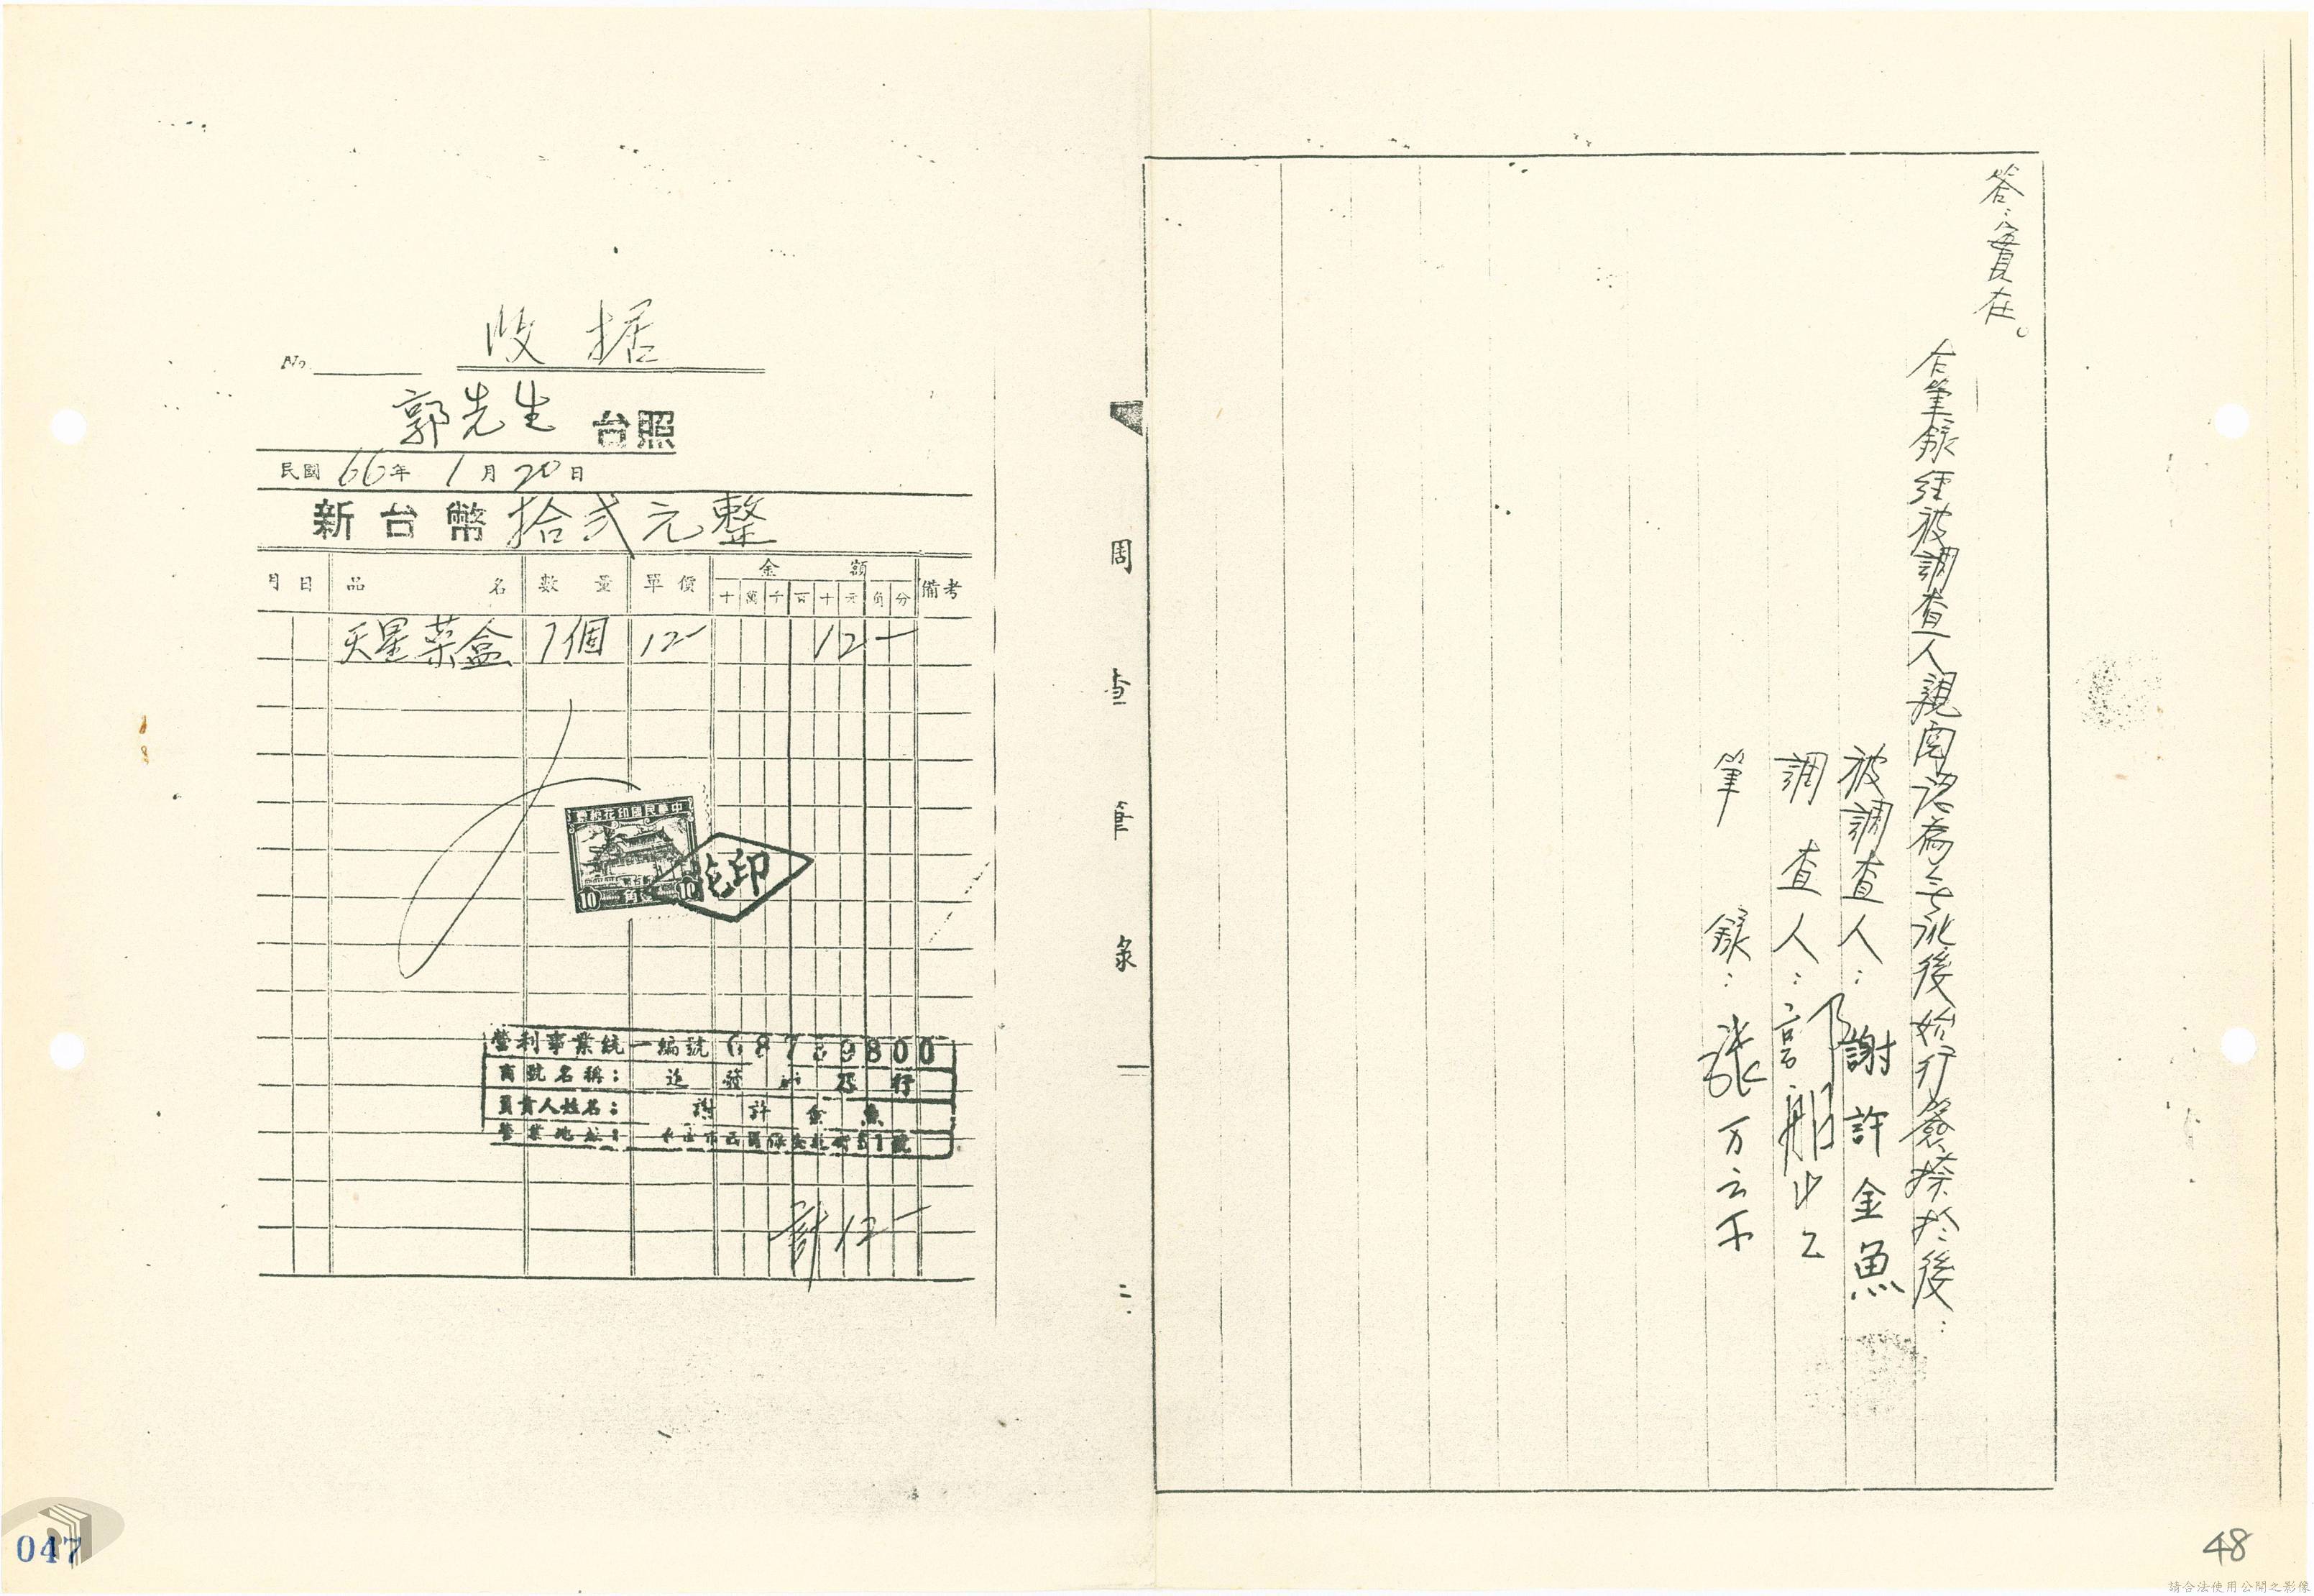 答：實在。
右筆錄經被調查人親閱認為無訛後始行簽捺於後：
被調查人：謝許金魚
調查人：
筆錄：張
調查筆錄
二
收据
No.
郭先生 台照
民國66年1月20日
新台幣拾弍元整
月 日 品名 數量 單價 金額 備考
十 萬 千 百 十 元 角 分
天星菜盒 1個 12- 12-
中華民國印花稅票
10 10
印花
營利事業統一編號
商號名稱： 行
負責人姓名：謝許金魚
營業地址： 51號
計12-
047
48
請合法使用公開之影像